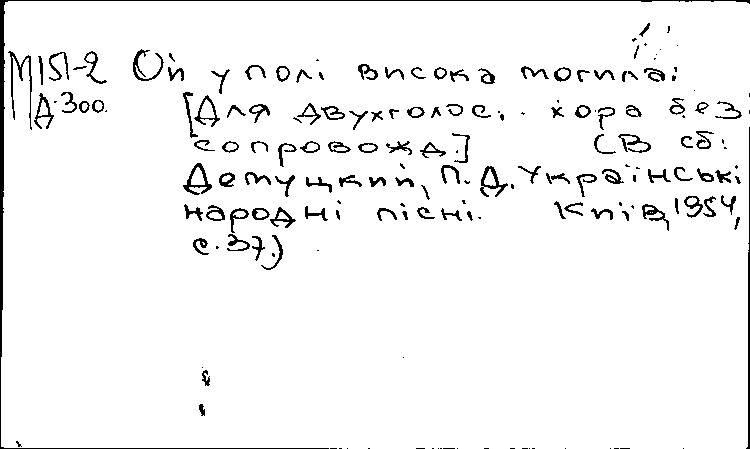 М151-2 Ой у полі висока могила:
Д-300. [Для двухголос. хора без
сопровожд.] (В сб:
Демуцкий, П.Д. Українські
народні пісні. Київ, 1954,
с. 37.)